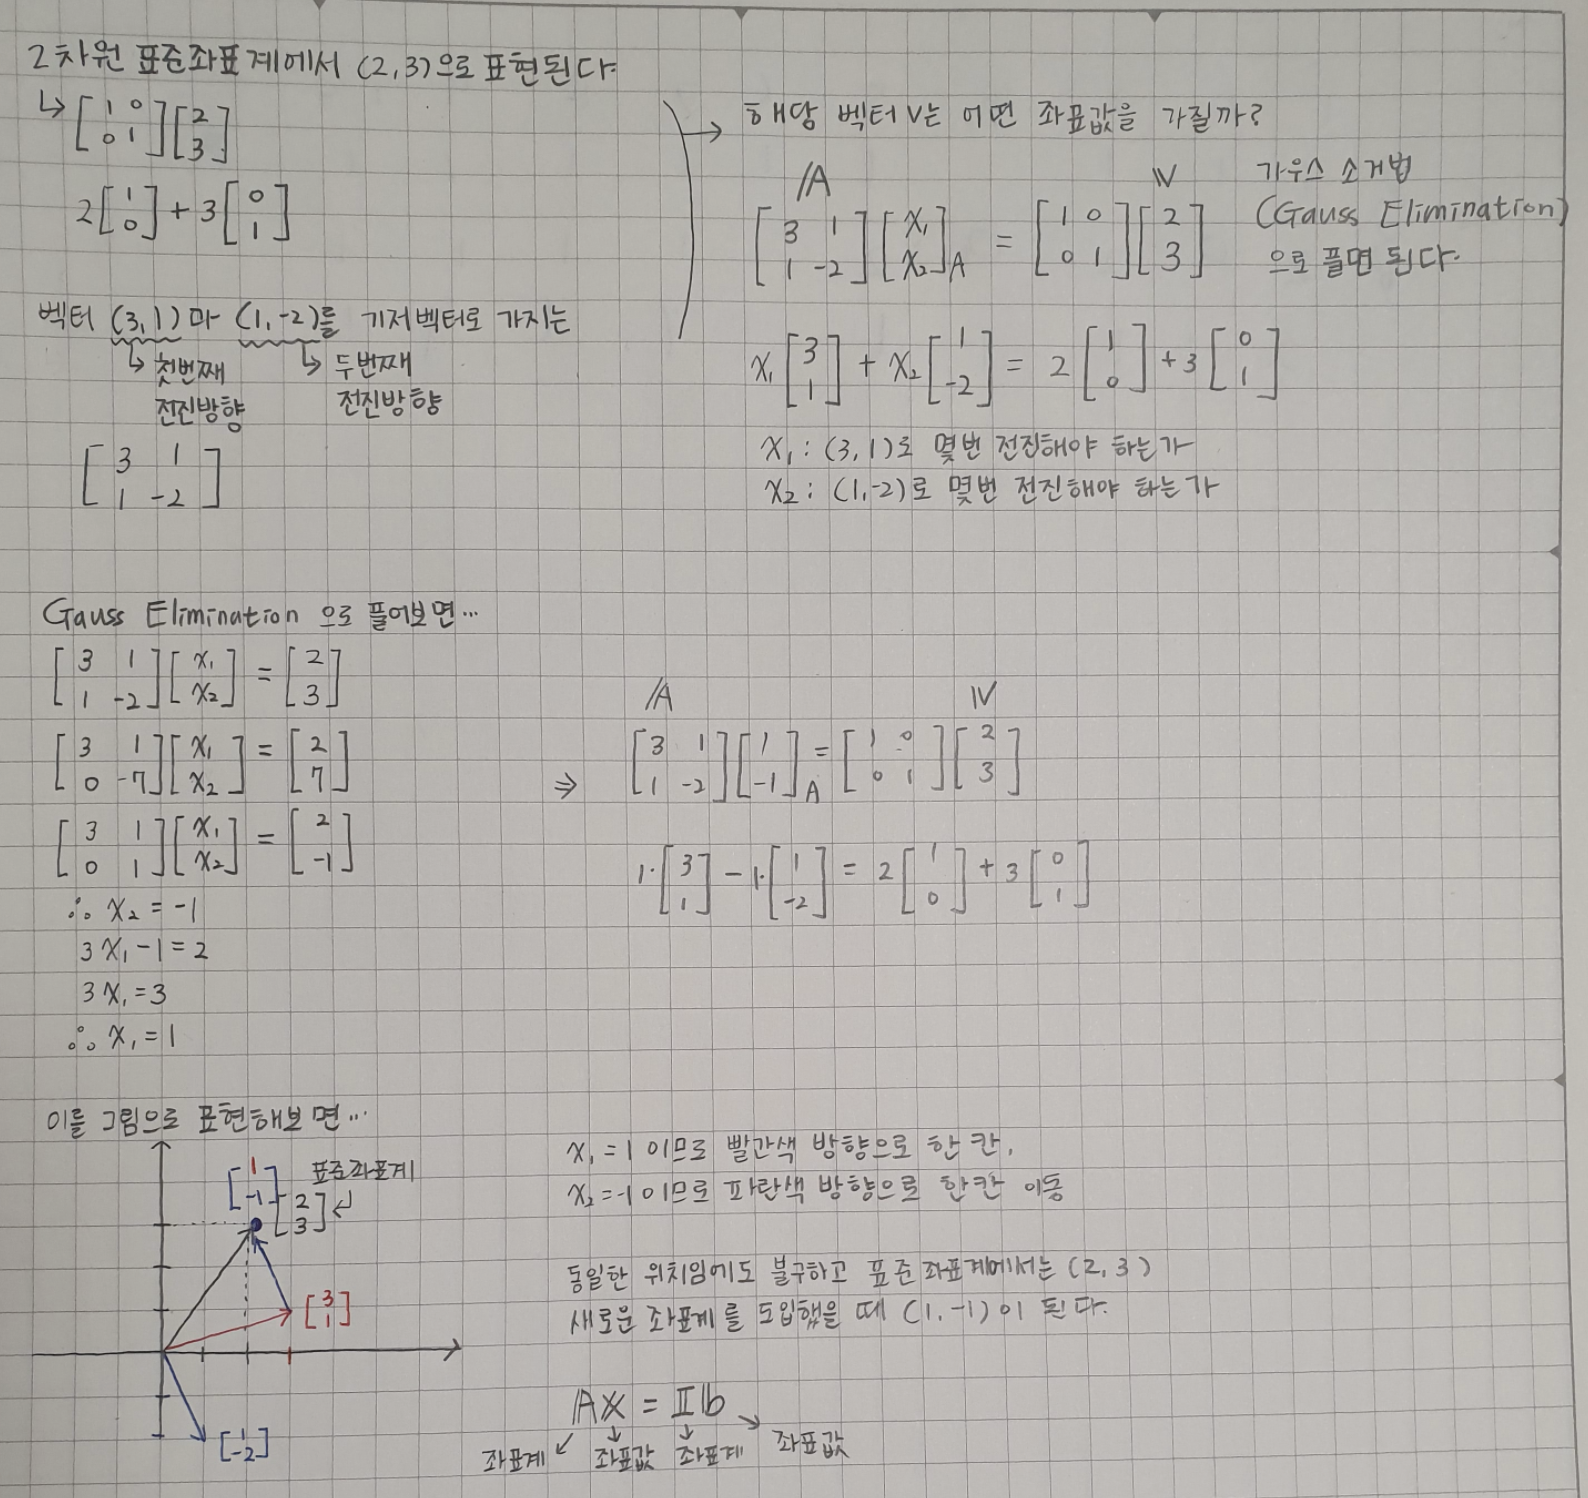 2차원 표준좌표계에서 (2,3)으로 표현된다
↳ [1 0; 0 1][2; 3]
2[1; 0] + 3[0; 1]
벡터 (3,1)과 (1,-2)를 기저벡터로 가지는
↳ 첫번째 전진방향
↳ 두번째 전진방향
[3 1; 1 -2]
→ 해당 벡터 V는 어떤 좌표값을 가질까?
A V
[3 1; 1 -2][x₁; x₂]A = [1 0; 0 1][2; 3]
가우스 소거법
(Gauss Elimination)
으로 풀면 된다.
x₁[3; 1] + x₂[1; -2] = 2[1; 0] + 3[0; 1]
x₁ : (3,1)로 몇번 전진해야 하는가
x₂ : (1,-2)로 몇번 전진해야 하는가
Gauss Elimination 으로 풀어보면...
[3 1; 1 -2][x₁; x₂] = [2; 3]
[3 1; 0 -7][x₁; x₂] = [2; 7]
[3 1; 0 1][x₁; x₂] = [2; -1]
∴ x₂ = -1
3x₁ - 1 = 2
3x₁ = 3
∴ x₁ = 1
A V
⇒ [3 1; 1 -2][1; -1]A = [1 0; 0 1][2; 3]
1·[3; 1] - 1·[1; -2] = 2[1; 0] + 3[0; 1]
이를 그림으로 표현해보면...
[1; -1] 표준좌표계
[2; 3]
[3; 1]
[1; -2]
x₁ = 1 이므로 빨간색 방향으로 한 칸,
x₂ = -1 이므로 파란색 방향으로 한칸 이동
동일한 위치임에도 불구하고 표준좌표계에서는 (2, 3)
새로운 좌표계를 도입했을 때 (1, -1)이 된다.
Ax = Ib
좌표계 좌표값 좌표계 좌표값